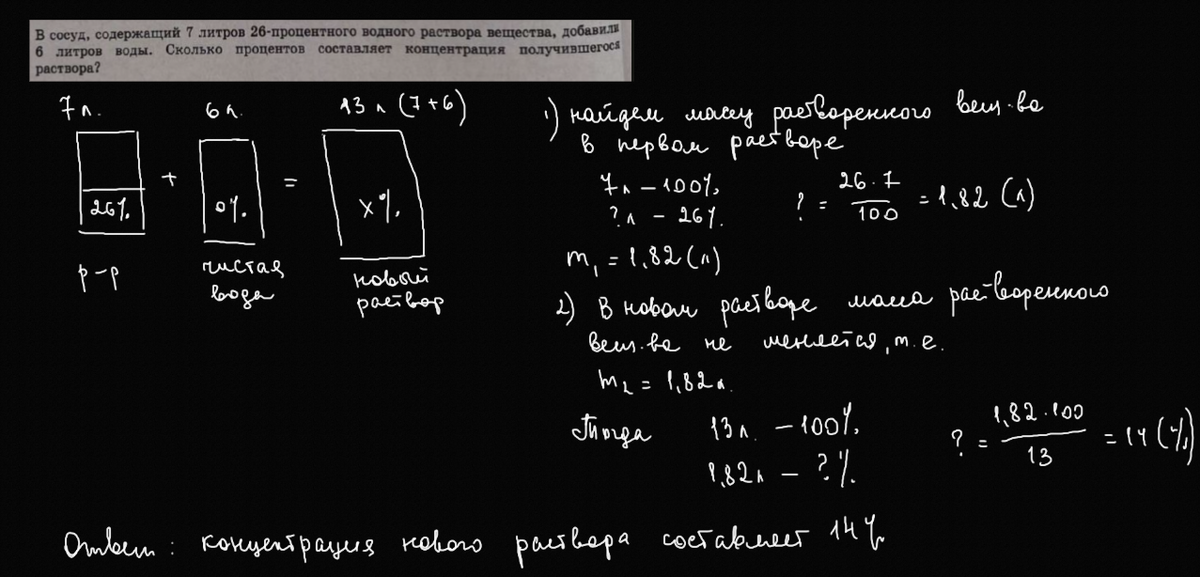 В сосуд, содержащий 7 литров 26-процентного водного раствора вещества, добавили
6 литров воды. Сколько процентов составляет концентрация получившегося
раствора?
7 л. 6 л. 13 л (7+6)
26%. + 0%. = x%.
р-р чистая вода новый раствор
1) найдем массу растворенного вещ-ва
в первом растворе
7л – 100%
?л – 26%. ? = 26·7/100 = 1,82 (л)
m₁ = 1,82 (л)
2) В новом растворе масса растворенного
вещ-ва не меняется, т.е.
m₂ = 1,82 л.
Тогда 13 л. – 100%
1,82 л – ?%. ? = 1,82·100/13 = 14 (%)
Ответ: концентрация нового раствора составляет 14%